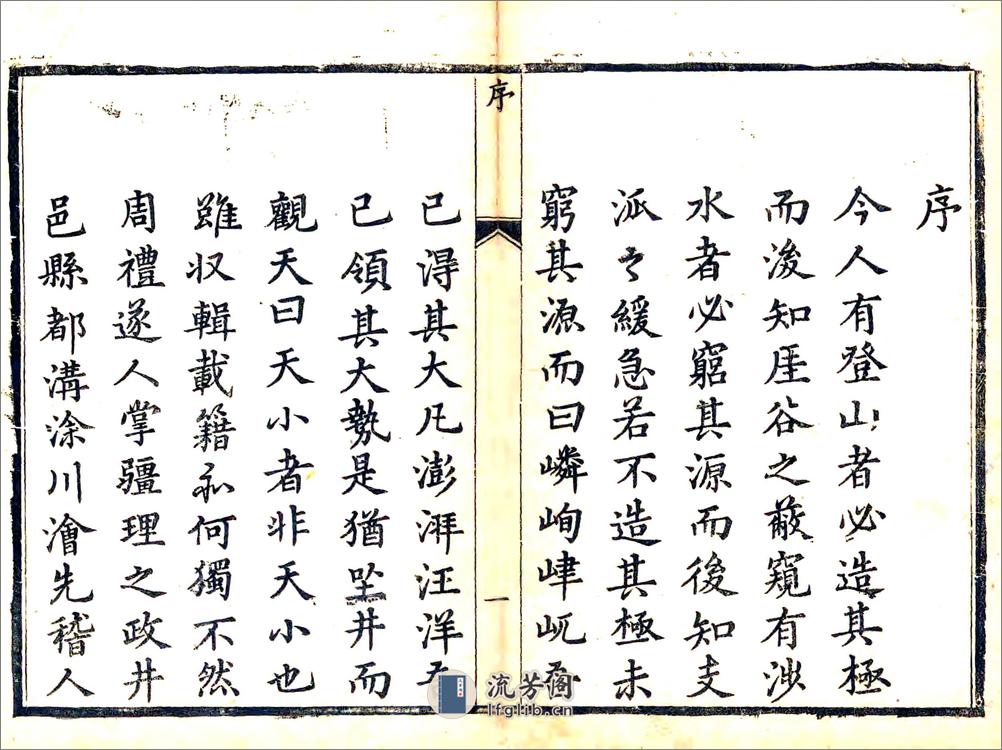 序
今人有登山者必造其極
而後知厓谷之蔽窺有涉
水者必窮其源而後知支
派之緩急若不造其極未
窮其源而曰嶙峋峍屼吾
已得其大凡澎湃汪洋吾
已領其大勢是猶坐井而
觀天曰天小者非天小也
雖収輯載籍亦何獨不然
周禮遂人掌疆理之政井
邑縣都溝涂川澮先稽人
序
一
流芳阁
lfglib.cn